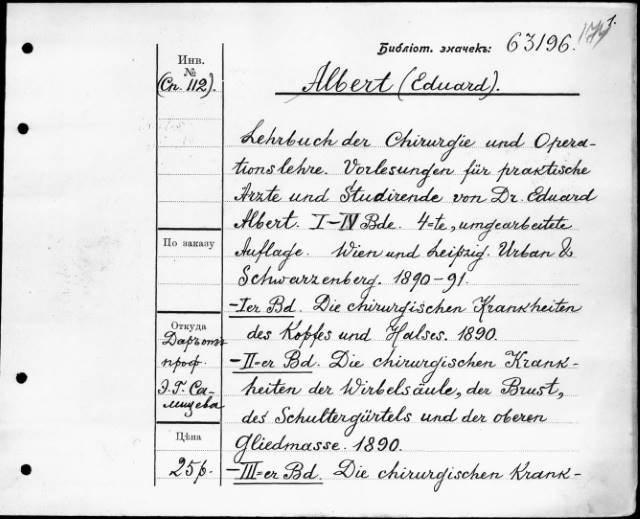 Библіот. значекъ: 63196.
Инв.
№
(Сп. 112).
Albert (Eduard).
Lehrbuch der Chirurgie und Opera-
tionslehre. Vorlesungen für praktische
Ärzte und Studirende von Dr. Eduard
Albert. I-IV Bde. 4=te, umgearbeitete
Auflage. Wien und Leipzig. Urban &
Schwarzenberg. 1890-91.
-Ier Bd. Die chirurgischen Krankheiten
des Kopfes und Halses. 1890.
-II-er Bd. Die chirurgischen Krank-
heiten der Wirbelsäule, der Brust,
des Schultergürtels und der oberen
Gliedmasse. 1890.
-III=er Bd. Die chirurgischen Krank-
По заказу
Откуда
Даръ отъ
проф.
Э.Г. Са-
лищева
Цѣна
25р.